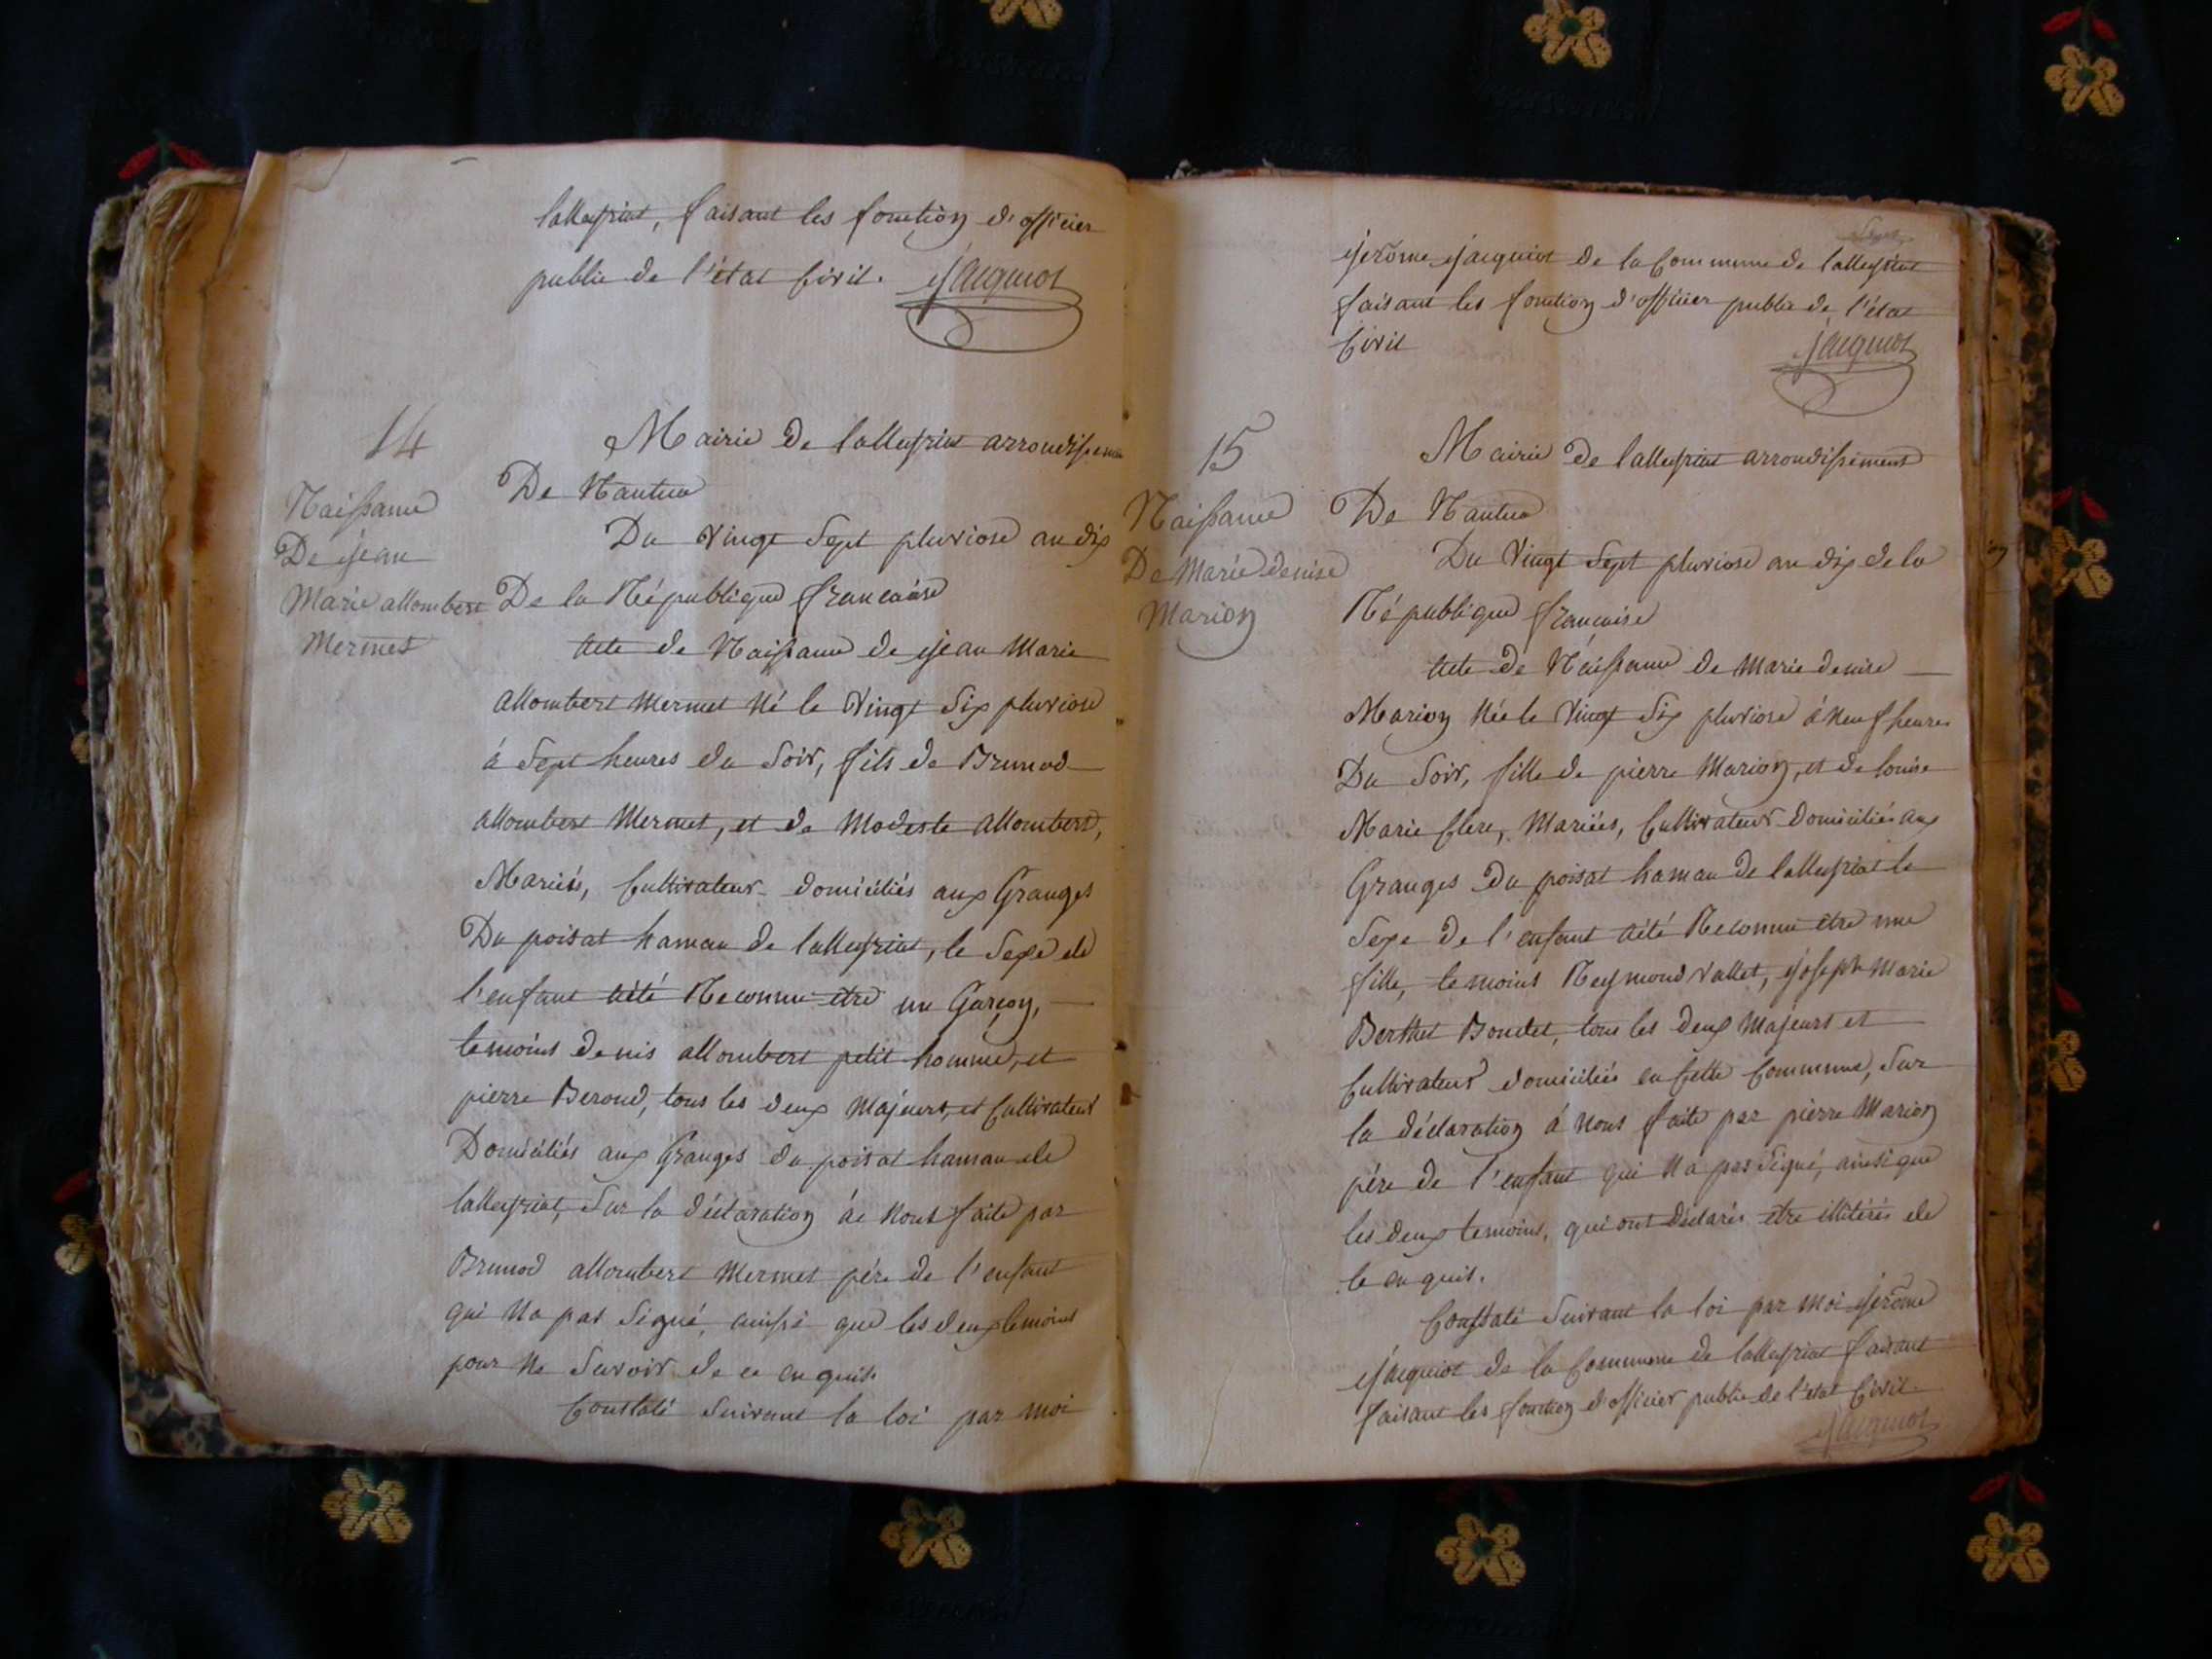 lalleyriat, faisant les fonction d'officier
public de l'état Civil. Jacquiot
14
Naissance
De jean
Marie allombert
Mermet
Mairie de lalleyriat arrondissement
De Nantua
Du vingt Sept pluviose an dix
De la République francaise
Acte de Naissance de jean Marie
allombert Mermet Né le vingt Six pluviose
á Sept heures du Soir, fils de Brunod
allombert Mermet, et de Modeste allombert,
Mariés, Cultivateur domiciliés aux Granges
Du poisat hamau de lalleyriat, le Sexe de
l'enfant aété Reconnu etre un Garçon,
temoins denis allombert petit homme, et
pierre Beroud, tous les deux Majeurs, et Cultivateur
Domiciliés aux Granges du poisat hamau de
lalleyriat, Sur la déclaration áe Nous faite par
Brunod allombert Mermet pére de l'enfant
qui Na pas Signé, ainssi que les deux temoins
pour Ne Savoir de ce en quis.
Constaté Suivant la loi par moi
jerôme jacquiot de la Commune de lalleyriat
faisant les fonction d'officier public de l'état
Civil
Jacquiot
15
Naissance
De Marie denise
Marion
Mairie de lalleyriat arrondissement
De Nantua
Du Vingt Sept pluviose an dix de la
République francaise
Acte de Naissance de Marie denise
Marion Née le Vingt Six pluviose á Neuf heures
Du Soir, fille de pierre Marion, et de louise
Marie Clere, Mariées, Cultivateur domiciliés aux
Granges du poisat hamau de lalleyriat le
Sexe de l'enfant aété Reconnu etre une
fille, temoins Reymond Vallet, joseph Marie
Berthet Boudet, tous les deux Majeurs et
Cultivateur domiciliés en Cette Commune, Sur
la déclaration á Nous faite par pierre Marion
pére de l'enfant qui Na pas Signé, ainsi que
les deux temoins, qui ont déclarés etre illitérés de
ce en quis.
Constaté Suivant la loi par Moi jerôme
jacquiot de la Commune de lalleyriat faisant
faisant les fonction d'officier public de l'état Civil.
Jacquiot